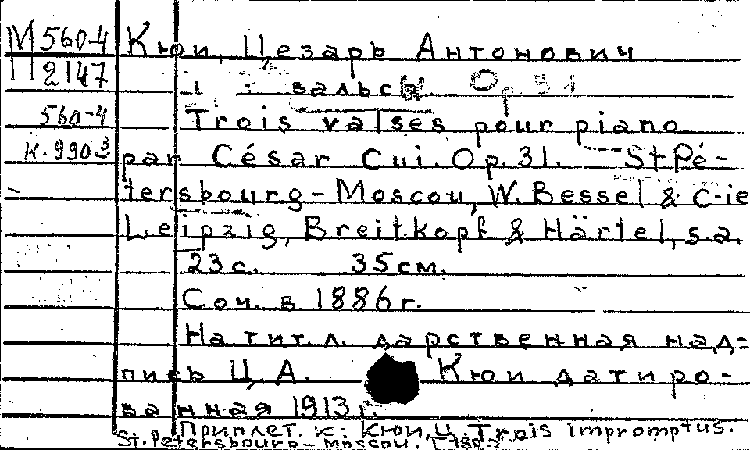 М 560-4 Кюи, Цезарь Антонович
П 2147 вальсы Op. 31
560-4 Trois valses pour piano
К.990-3 par César Cui. Op. 31. — St Pé-
tersbourg – Moscou, W. Bessel & C-ie
Leipzig, Breitkopf & Härtel, s.a.
23 с. 35 см.
Соч. в 1886 г.
На тит. л. дарственная над-
пись Ц. А. Кюи датиро-
ванная 1913 г.
Приплет. к: Кюи, Ц. Trois impromptus.
St. Petersbourg – Moscou.